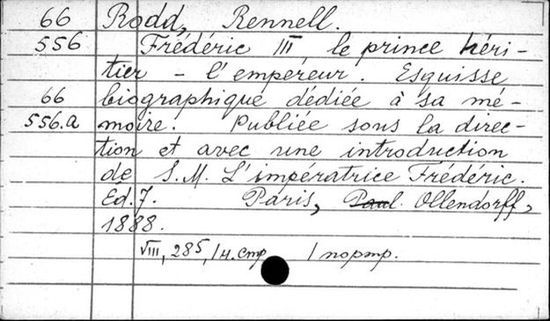 66 Rodd, Rennell.
556 Frédéric III le prince héri-
tier - l'empereur. Esquisse
66 biographique dédiée à sa mé-
556.a moire. Publiée sous la direc-
tion et avec une introduction
de S.M. L'impératrice Frédéric.
Ed. 7. Paris, Paul. Ollendorff,
1888.
VIII, 285, 1 н. стр. 1 портр.